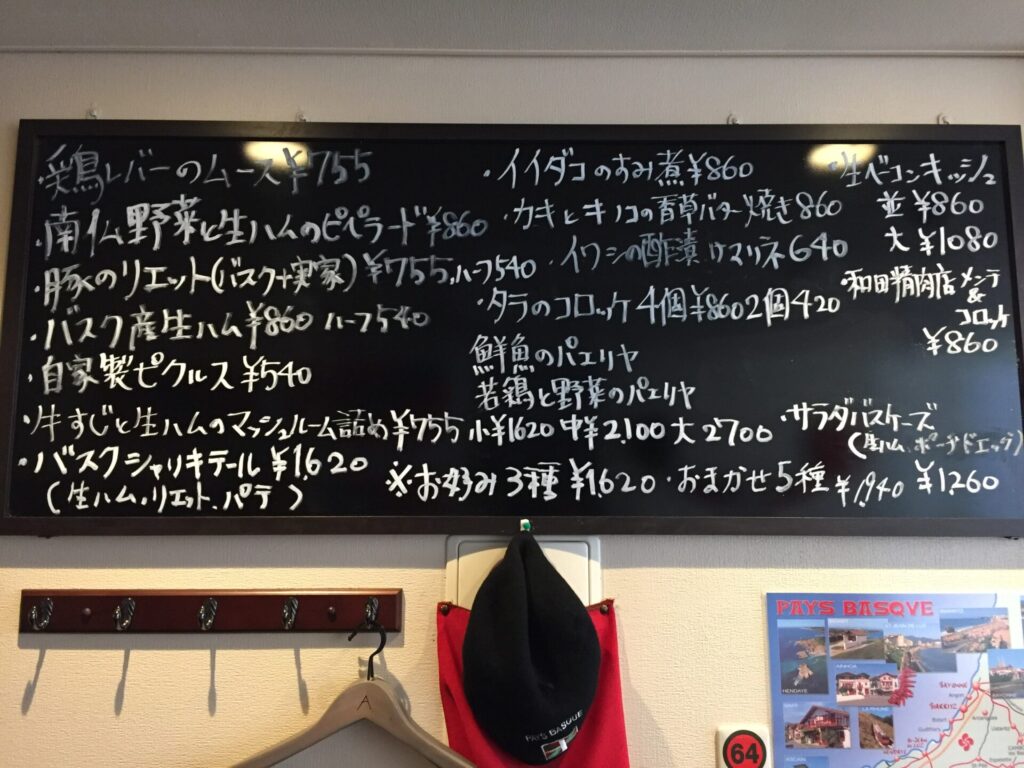 ・鶏レバーのムース ¥755
・南仏野菜と生ハムのピペラード ¥860
・豚のリエット(バスク+実家) ¥755, ハーフ540
・バスク産生ハム ¥860 ハーフ540
・自家製ピクルス ¥540
・牛すじと生ハムのマッシュルーム詰め ¥755
・バスクシャリキテール ¥1,620
(生ハム、リエット、パテ)
・イイダコのすみ煮 ¥860
・カキとキノコの香草バター焼き 860
・イワシの酢漬けマリネ 640
・タラのコロッケ 4個 ¥860 2個 420
鮮魚のパエリヤ
若鶏と野菜のパエリヤ
小 ¥1620 中 ¥2,100 大 2700
※お好み3種 ¥1,620・おまかせ5種 ¥1,940
・生ベーコンキッシュ
並 ¥860
大 ¥1080
・和田精肉店メンチ
&
コロッケ
¥860
・サラダバスケーズ
(生ハム、ポーチドエッグ)
¥1,260
A
PAYS BASQUE
64
PAYS BASQUE
HENDAYE
AINHOA
BAYONNE
BIARRITZ